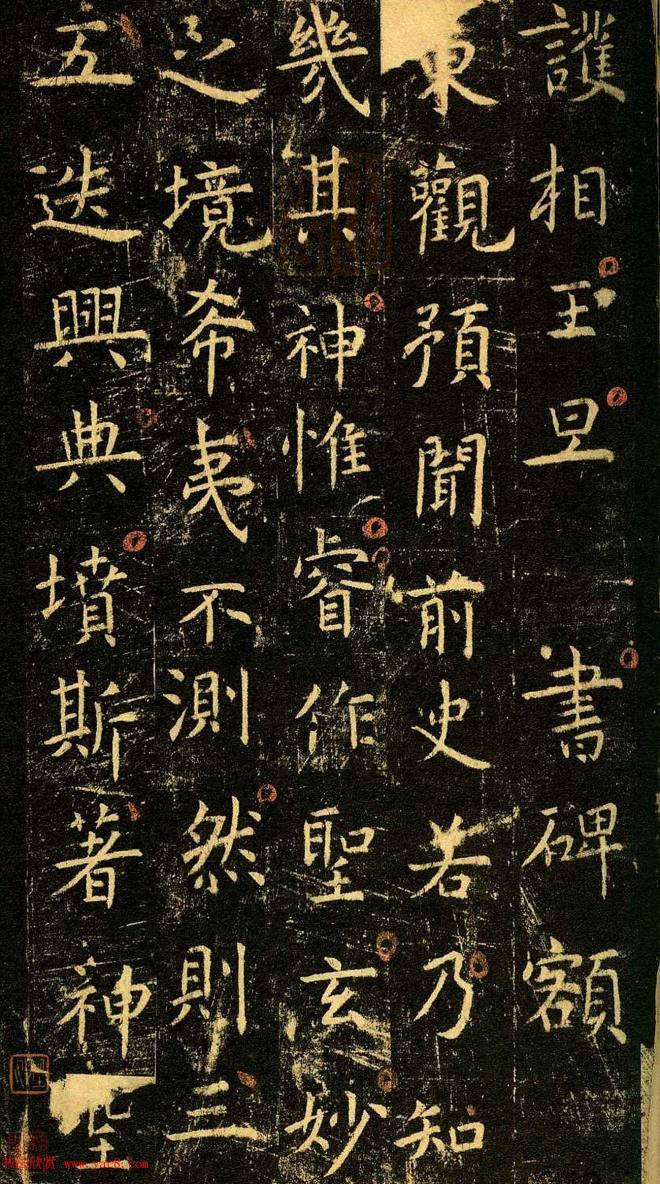 護相王旦書碑額
東觀預聞前史若乃知
幾其神惟睿作聖玄妙
之境希夷不測然則三
五迭興典墳斯著神
欣赏 www.yac8.com